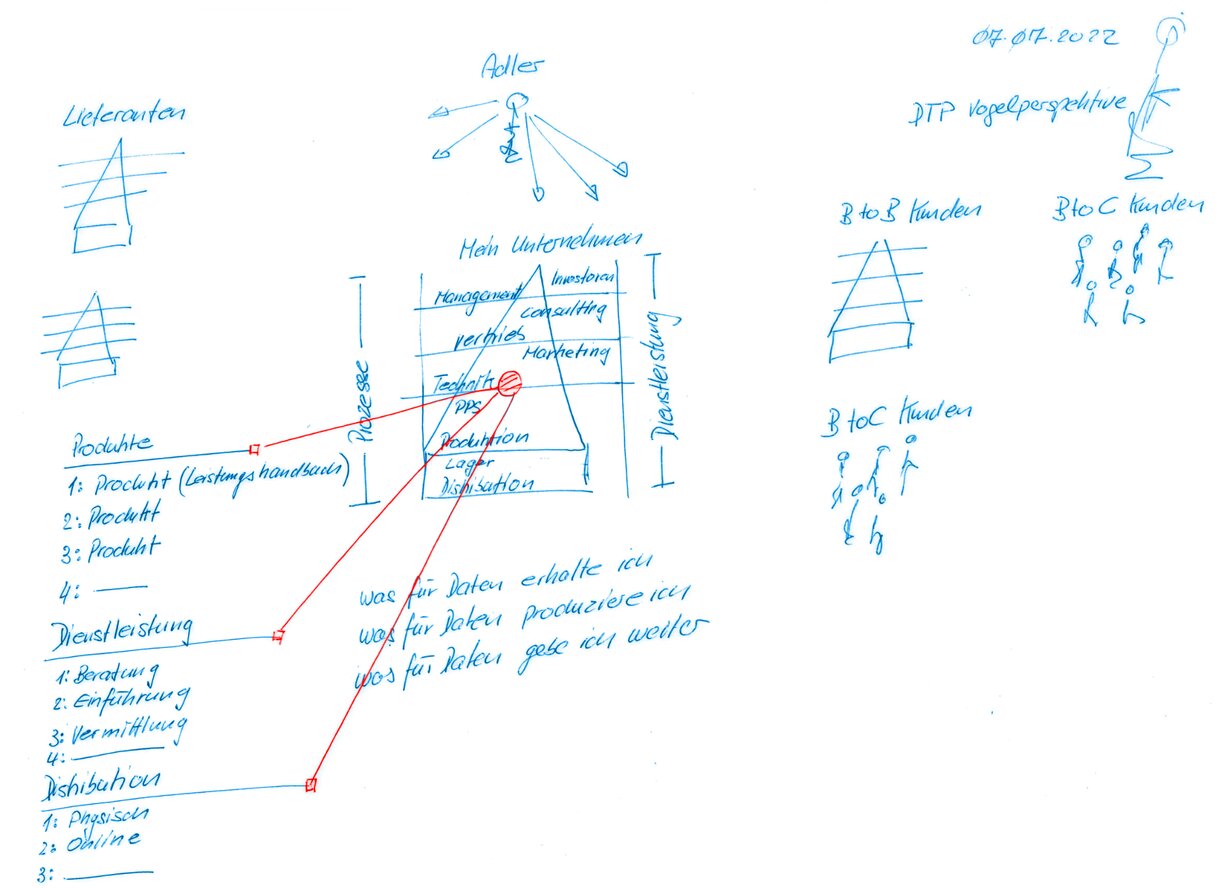 07.07.2022
Adler
Lieferanten
DTP Vogelperspektive
B to B Kunden
B to C Kunden
Mein Unternehmen
Management
Investoren
Consulting
Vertrieb
Marketing
Technik
PPS
Produktion
Lager
Distribution
Prozesse
Dienstleistung
B to C Kunden
Produkte
1: Produkt (Leistungshandbuch)
2: Produkt
3: Produkt
4: ——
was für Daten erhalte ich
was für Daten produziere ich
was für Daten gebe ich weiter
Dienstleistung
1: Beratung
2: Einführung
3: Vermittlung
4: ——
Distribution
1: Physisch
2: Online
3: ——